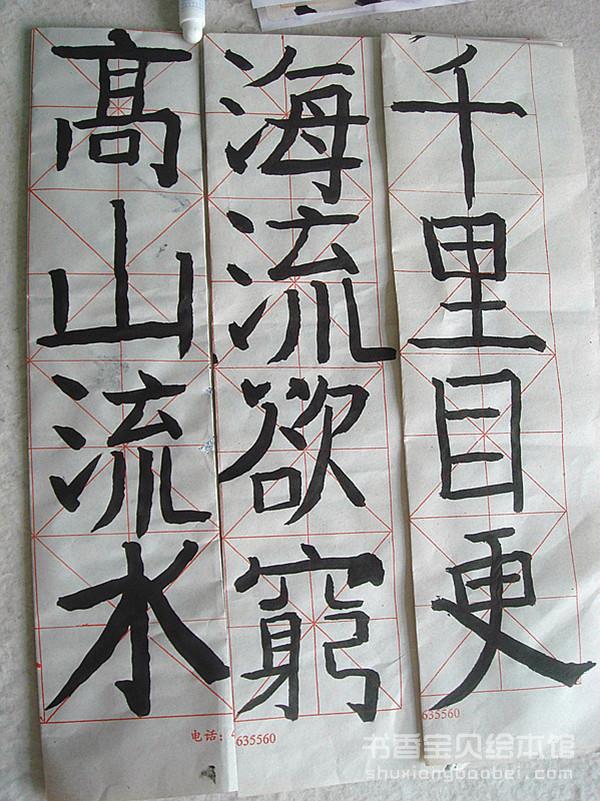 髙山流水
海流欲窮
千里目更
电话:
635560
635560
书香宝贝绘本馆
shuxiangbaobei.com